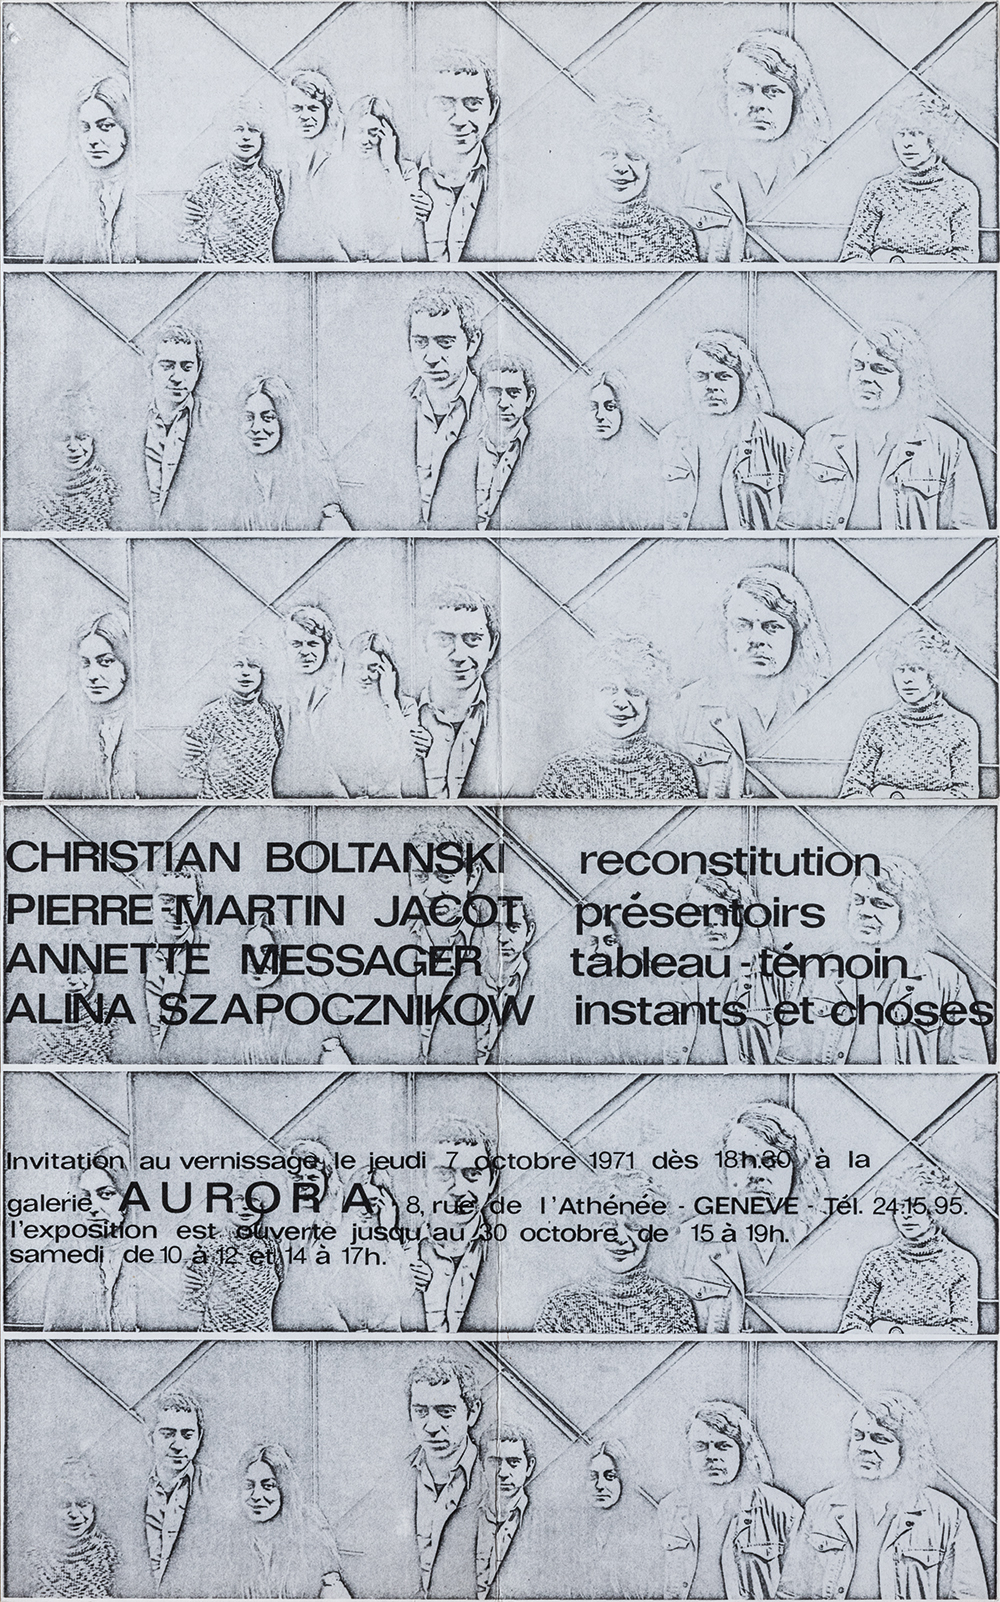 CHRISTIAN BOLTANSKI reconstitution
PIERRE-MARTIN JACOT présentoirs
ANNETTE MESSAGER tableau-témoin
ALINA SZAPOCZNIKOW instants et choses
Invitation au vernissage, le jeudi 7 octobre 1971 dès 18h.30 à la
galerie AURORA, 8, rue de l'Athénée - GENEVE - Tél. 24.15.95.
l'exposition est ouverte jusqu'au 30 octobre de 15 à 19h.
samedi de 10 à 12 et 14 à 17h.